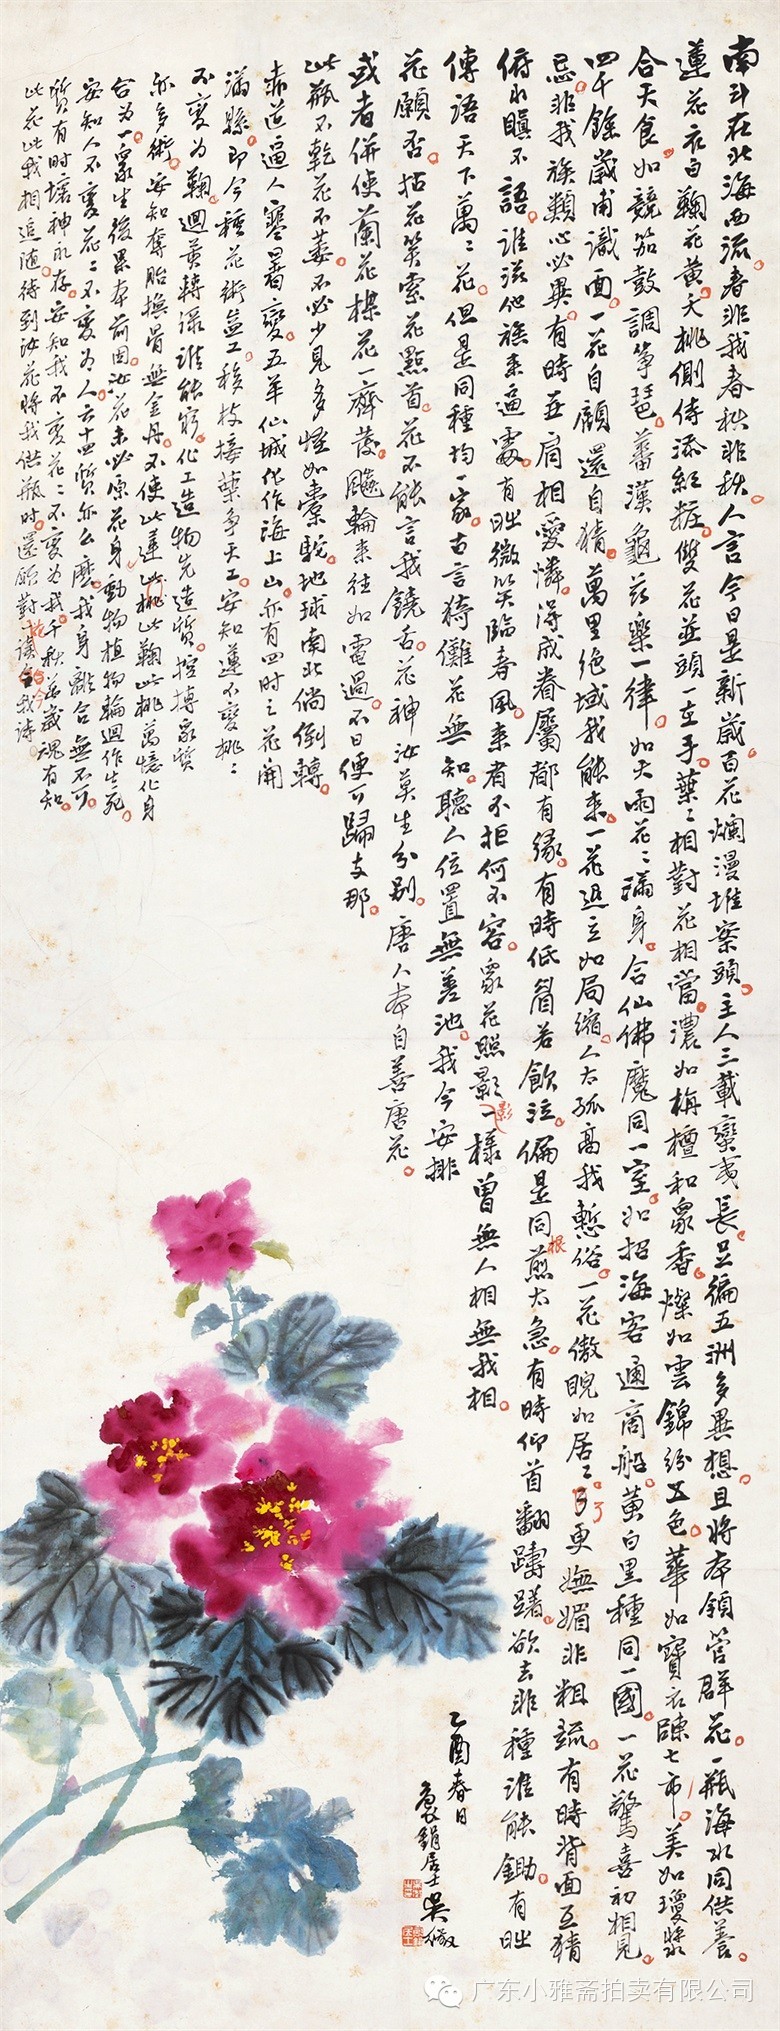 南斗在北海西流。春非我春秋非秋。人言今日是新歲。百花爛漫堆案頭。主人三載蠻夷長。足徧五洲多異想。且將本領管群花。一瓶海水同供養。
蓮花衣白鞠花黃。夭桃側侍添紅粧。雙花並頭一在手。葉〻相對花相當。濃如栴檀和眾香。燦如雲錦紛五色。華如寶衣陳七市。美如瓊漿
合天食。如競笳鼓調箏琶。蕃漢龜茲樂一律。如天雨花〻滿身。合仙佛魔同一室。如招海客通商船。黃白黑種同一國。一花驚喜初相見。
四千餘歲甫識面。一花自顧還自猜。萬里絕域我能來。一花退立如局縮。人太孤高我慙俗。一花傲睨如居〻。了更嫵媚非粗疏。有時背面互猜
忌。非我族類心必異。有時並肩相愛憐。得成眷屬都有緣。有時低眉若飲泣。偏是同根煎太急。有時仰首翻躊躇。欲去非種誰能鋤。有時
俯水瞋不語。誰滋他族來逼處。有時微笑臨春風。來者不拒何不容。眾花照影影一樣。曾無人相無我相。
傳語天下萬〻花。但是同種均一家。古言猗儺花無知。聽人位置無差池。我今安排
花願否。拈花笑索花點首。花不能言我饒舌。花神汝莫生分別。唐人本自善唐花。
或者併使蘭花楳花一齊發。飈輪來往如電過。不日便可歸支那。
此瓶不乾花不萎。不必少見多怪如橐駝。地球南北倘倒轉。
赤道逼人寒暑變。五羊仙城化作海上山。亦有四時之花開
滿縣。即今種花術益工。移枝接葉爭天工。安知蓮不變桃〻
不變為鞠。迴黃轉綠誰能窮。化工造物先造質。控摶眾質
亦多術。安知奪胎換骨無金丹。不使此蓮此桃此鞠此桃萬億化身
合為一。眾生後果本前因。汝花未必原花身。動物植物輪迴作生死。
安知人不變花〻不變為人。六十四質亦么麼。我身離合無不可。
質有時壞神永存。安知我不變花〻不變為我。千秋萬歲魂有知。
此花此我相追隨。待到汝花將我供瓶時。還願對花一讀今我詩。
乙酉春日
居士吳
广东小雅斋拍卖有限公司